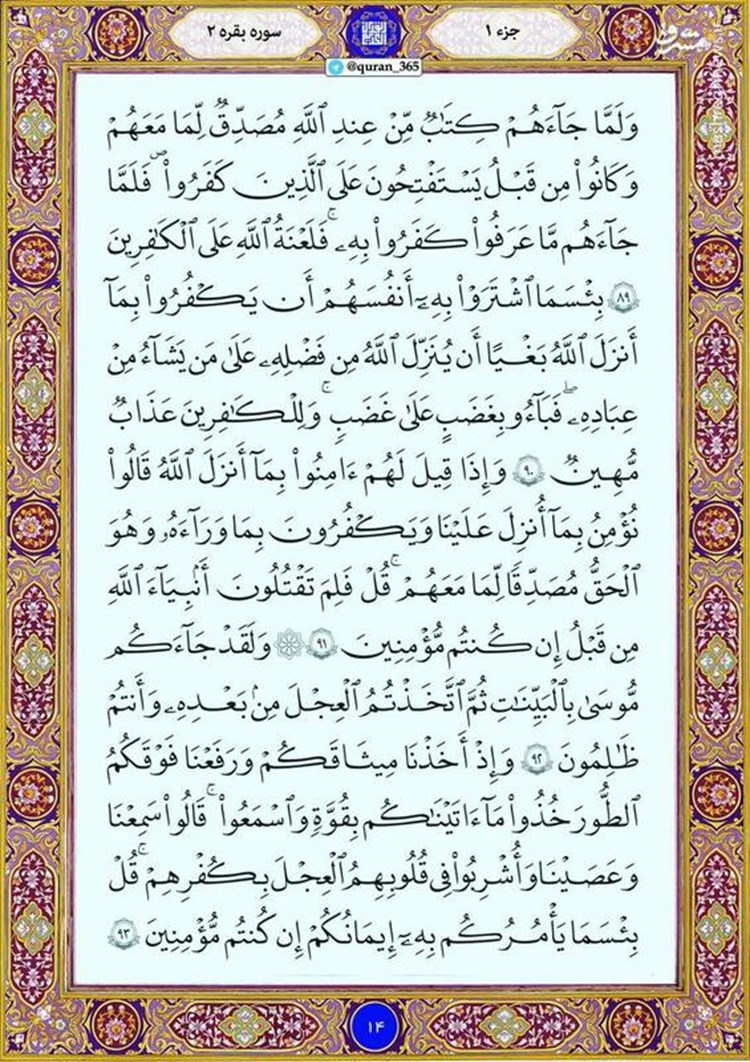 جزء ۱
سوره بقره ۲
@quran_365
وَلَمَّا جَآءَهُمْ كِتَٰبٌ مِّنْ عِندِ ٱللَّهِ مُصَدِّقٌ لِّمَا مَعَهُمْ
وَكَانُوا۟ مِن قَبْلُ يَسْتَفْتِحُونَ عَلَى ٱلَّذِينَ كَفَرُوا۟ۖ فَلَمَّا
جَآءَهُم مَّا عَرَفُوا۟ كَفَرُوا۟ بِهِۦۚ فَلَعْنَةُ ٱللَّهِ عَلَى ٱلْكَٰفِرِينَ
۸۹ بِئْسَمَا ٱشْتَرَوْا۟ بِهِۦٓ أَنفُسَهُمْ أَن يَكْفُرُوا۟ بِمَآ
أَنزَلَ ٱللَّهُ بَغْيًا أَن يُنَزِّلَ ٱللَّهُ مِن فَضْلِهِۦ عَلَىٰ مَن يَشَآءُ مِنْ
عِبَادِهِۦۖ فَبَآءُو بِغَضَبٍ عَلَىٰ غَضَبٍۚ وَلِلْكَٰفِرِينَ عَذَابٌ
مُّهِينٌ ۹۰ وَإِذَا قِيلَ لَهُمْ ءَامِنُوا۟ بِمَآ أَنزَلَ ٱللَّهُ قَالُوا۟
نُؤْمِنُ بِمَآ أُنزِلَ عَلَيْنَا وَيَكْفُرُونَ بِمَا وَرَآءَهُۥ وَهُوَ
ٱلْحَقُّ مُصَدِّقًا لِّمَا مَعَهُمْۗ قُلْ فَلِمَ تَقْتُلُونَ أَنۢبِيَآءَ ٱللَّهِ
مِن قَبْلُ إِن كُنتُم مُّؤْمِنِينَ ۹۱ ۞ وَلَقَدْ جَآءَكُم
مُّوسَىٰ بِٱلْبَيِّنَٰتِ ثُمَّ ٱتَّخَذْتُمُ ٱلْعِجْلَ مِنۢ بَعْدِهِۦ وَأَنتُمْ
ظَٰلِمُونَ ۹۲ وَإِذْ أَخَذْنَا مِيثَٰقَكُمْ وَرَفَعْنَا فَوْقَكُمُ
ٱلطُّورَ خُذُوا۟ مَآ ءَاتَيْنَٰكُم بِقُوَّةٍ وَٱسْمَعُوا۟ۖ قَالُوا۟ سَمِعْنَا
وَعَصَيْنَا وَأُشْرِبُوا۟ فِى قُلُوبِهِمُ ٱلْعِجْلَ بِكُفْرِهِمْۚ قُلْ
بِئْسَمَا يَأْمُرُكُم بِهِۦٓ إِيمَٰنُكُمْ إِن كُنتُم مُّؤْمِنِينَ ۹۳
۱۴